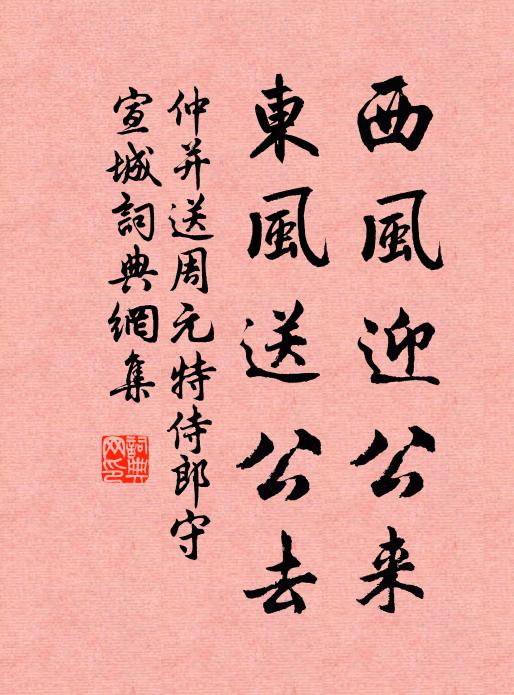 西風迎公来
東風送公去
仲并送周元特侍郎守
宣城詞典網集
詞典网印